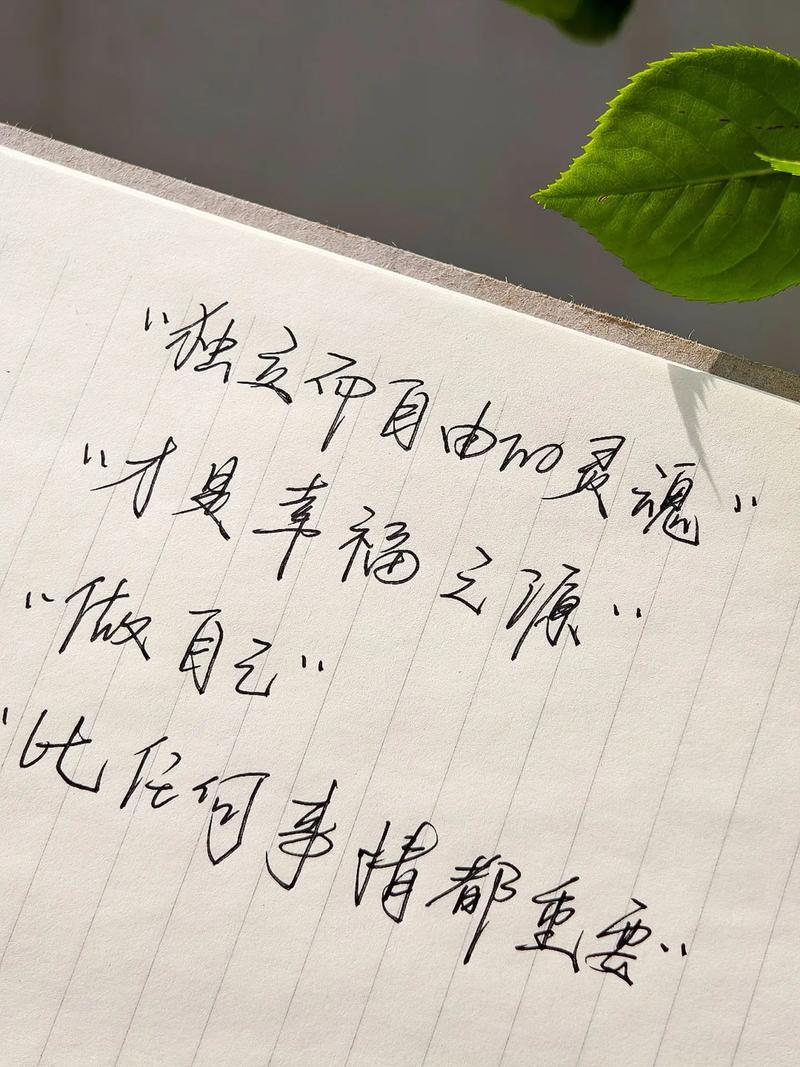 "独立而自由的灵魂"
"才是幸福之源"
"做自己"
"比任何事情都重要"